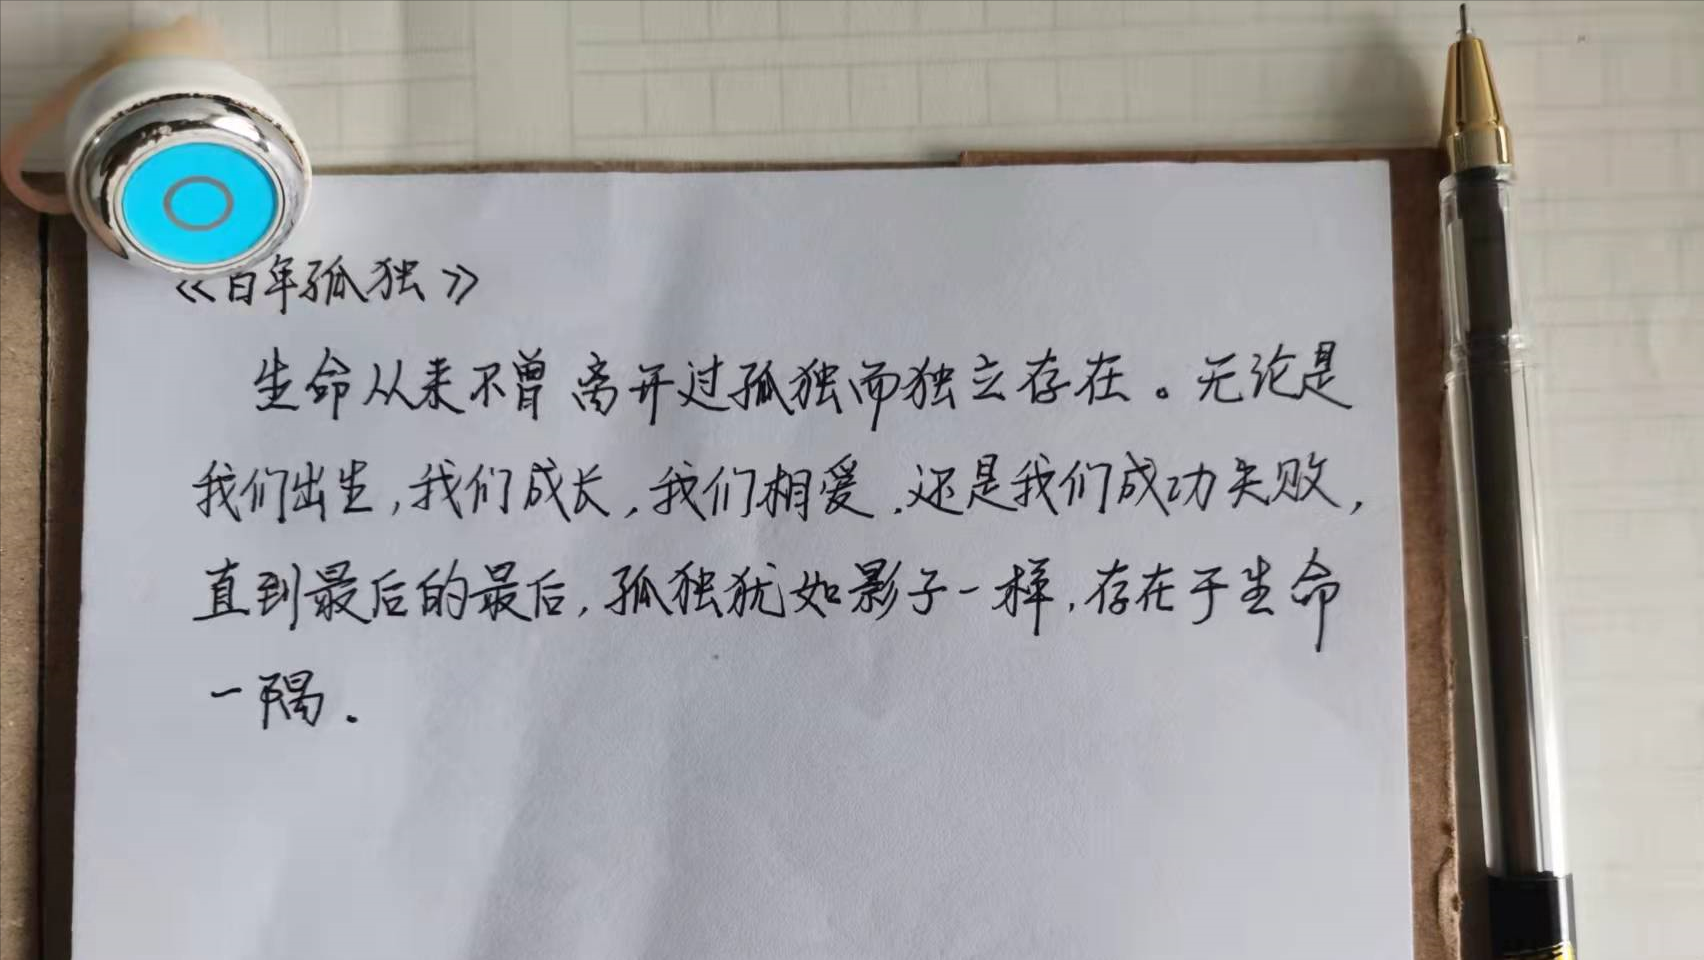 《百年孤独》
生命从来不曾离开过孤独而独立存在。无论是
我们出生,我们成长,我们相爱,还是我们成功失败,
直到最后的最后,孤独犹如影子一样,存在于生命
一隅.